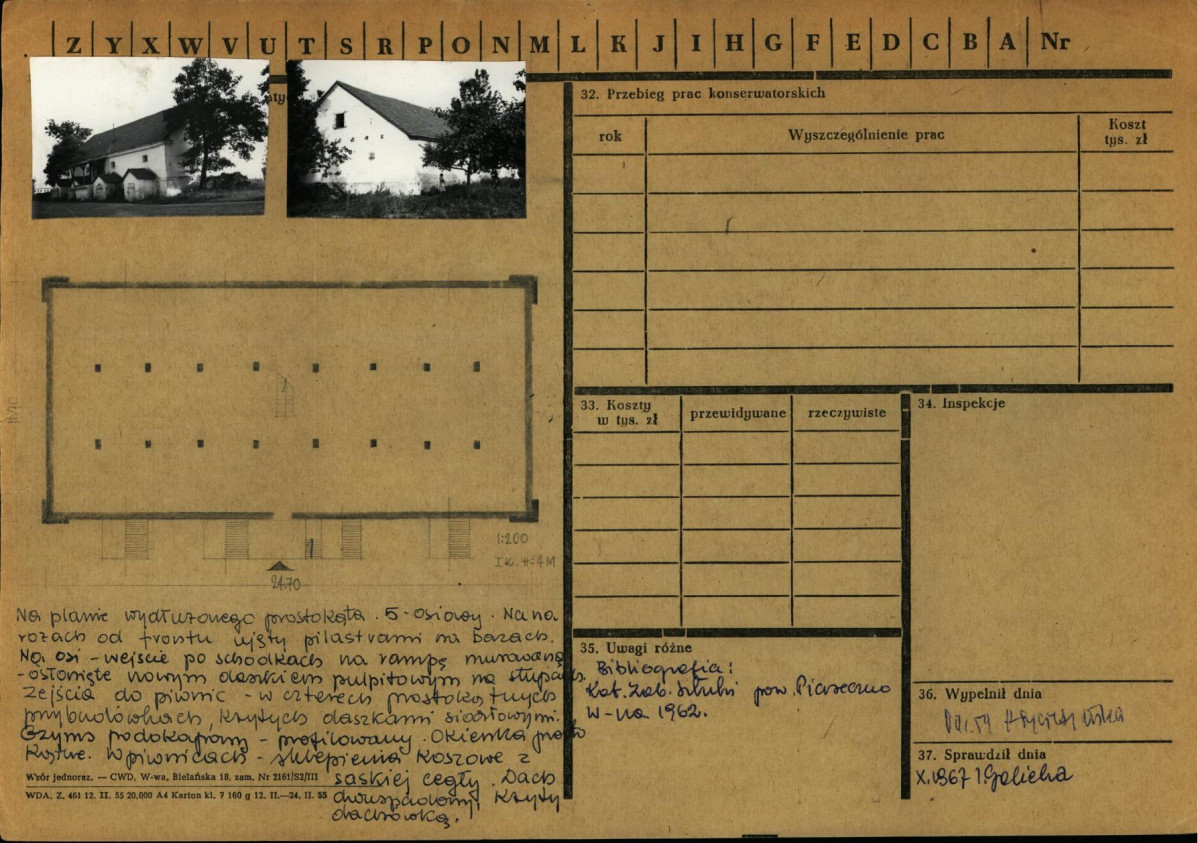 Z Y X W V U T S R P O N M L K J I H G F E D C B A Nr
32. Przebieg prac konserwatorskich
rok
Wyszczególnienie prac
Koszt
tys. zł
33. Koszty
w tys. zł
przewidywane
rzeczywiste
34. Inspekcje
1:200
24.70
Na planie wydłużonego prostokąta. 5-osiowy. Na na
rożach od frontu ujęty pilastrami na bazach.
Na osi - wejście po schodkach na rampę murowaną
- osłonięte nowym daszkiem pulpitowym na słupach.
Zejścia do piwnic - w czterech prostokątnych
przybudówkach, krytych daszkami siodłowymi.
Gzyms podokapowy - profilowany. Okienka prosto
kątne. W piwnicach - sklepienia koszowe z
saskiej cegły. Dach
dwuspadowy, kryty
dachówką.
Wzór jednoraz. — CWD, W-wa, Bielańska 18, zam. Nr 2161/S2/III
WDA. Z. 461 12. II. 55 20.000 A4 Karton kl. 7 160 g 12. II.—24. II. 55
35. Uwagi różne
Bibliografia:
Kat. Zab. Sztuki pow. Piaseczno
W-wa 1962.
36. Wypełnił dnia
37. Sprawdził dnia
X.1967 I Galicka